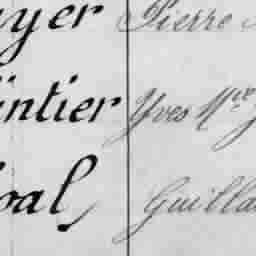 yer Pierre
ntier Yves Mie
oal, Guilla